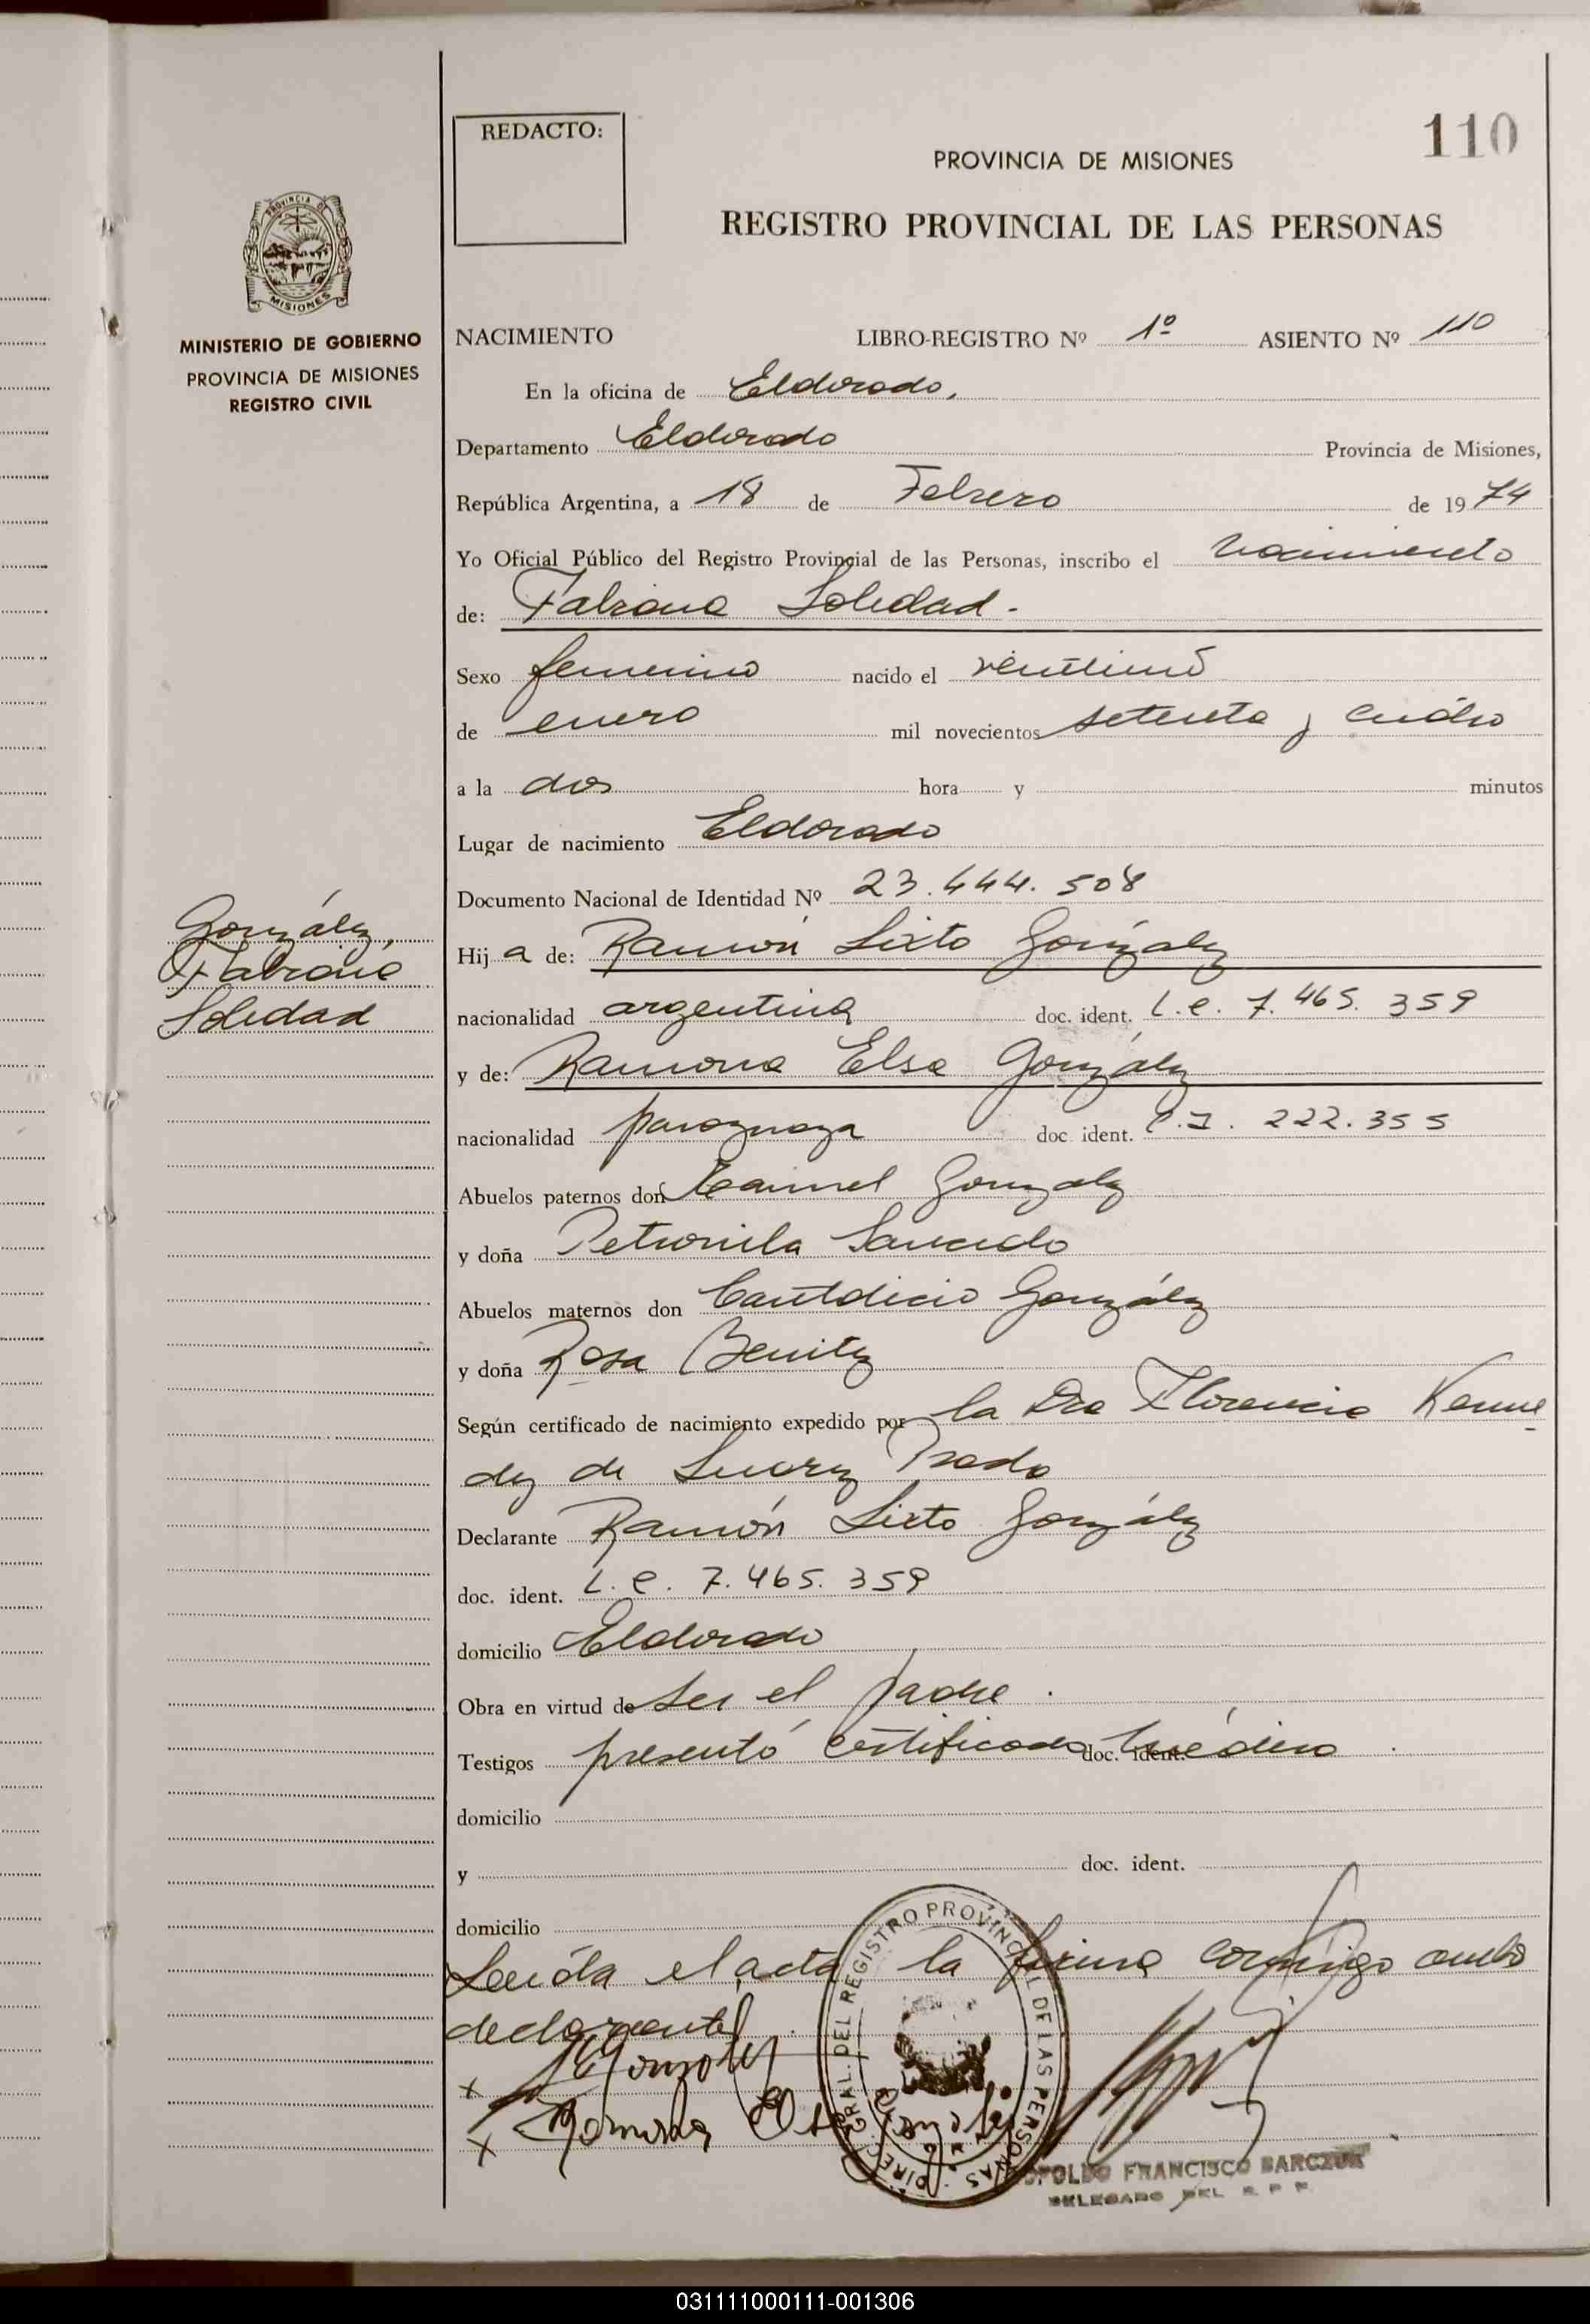 110
REDACTO:
PROVINCIA DE MISIONES
REGISTRO PROVINCIAL DE LAS PERSONAS
PROVINCIA DE
MISIONES
MINISTERIO DE GOBIERNO
PROVINCIA DE MISIONES
REGISTRO CIVIL
NACIMIENTO LIBRO-REGISTRO Nº 1º ASIENTO Nº 110
En la oficina de Eldorado,
Departamento Eldorado Provincia de Misiones,
República Argentina, a 18 de Febrero de 1974
Yo Oficial Público del Registro Provincial de las Personas, inscribo el nacimiento
de: Fabiana Soledad.
Sexo femenino nacido el veintiuno
de enero mil novecientos setenta y cuatro
a la dos hora y minutos
Lugar de nacimiento Eldorado
Documento Nacional de Identidad Nº 23.444.508
González,
Fabiana
Soledad
Hija de: Ramón Sixto González
nacionalidad argentina doc. ident. L.e. 7.465.359
y de: Ramona Elsa González
nacionalidad paraguaya doc. ident. C.I. 222.355
Abuelos paternos don González
y doña Petronila Saucedo
Abuelos maternos don González
y doña Rosa Benitez
Según certificado de nacimiento expedido por la Dra Florencia
de Suarez Prado
Declarante Ramón Sixto González
doc. ident. L.e. 7.465.359
domicilio Eldorado
Obra en virtud de ser el padre.
Testigos presentó certificado doc. ident. médico.
domicilio
y doc. ident.
domicilio
Leída el acta la firma conmigo ambos
declarantes.
x González
x Ramona Elsa González
DIREC. GRAL. DEL REGISTRO PROVINCIAL DE LAS PERSONAS
FRANCISCO BARCZUK
DELEGADO DEL R. P. P.
031111000111-001306